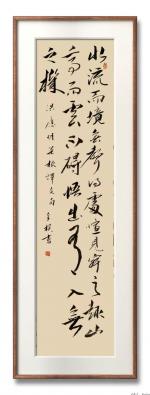 水流而境無聲得處喧見寂之趣山
高而雲不礙悟出有入無
之機
洪應明菜根譚句 書